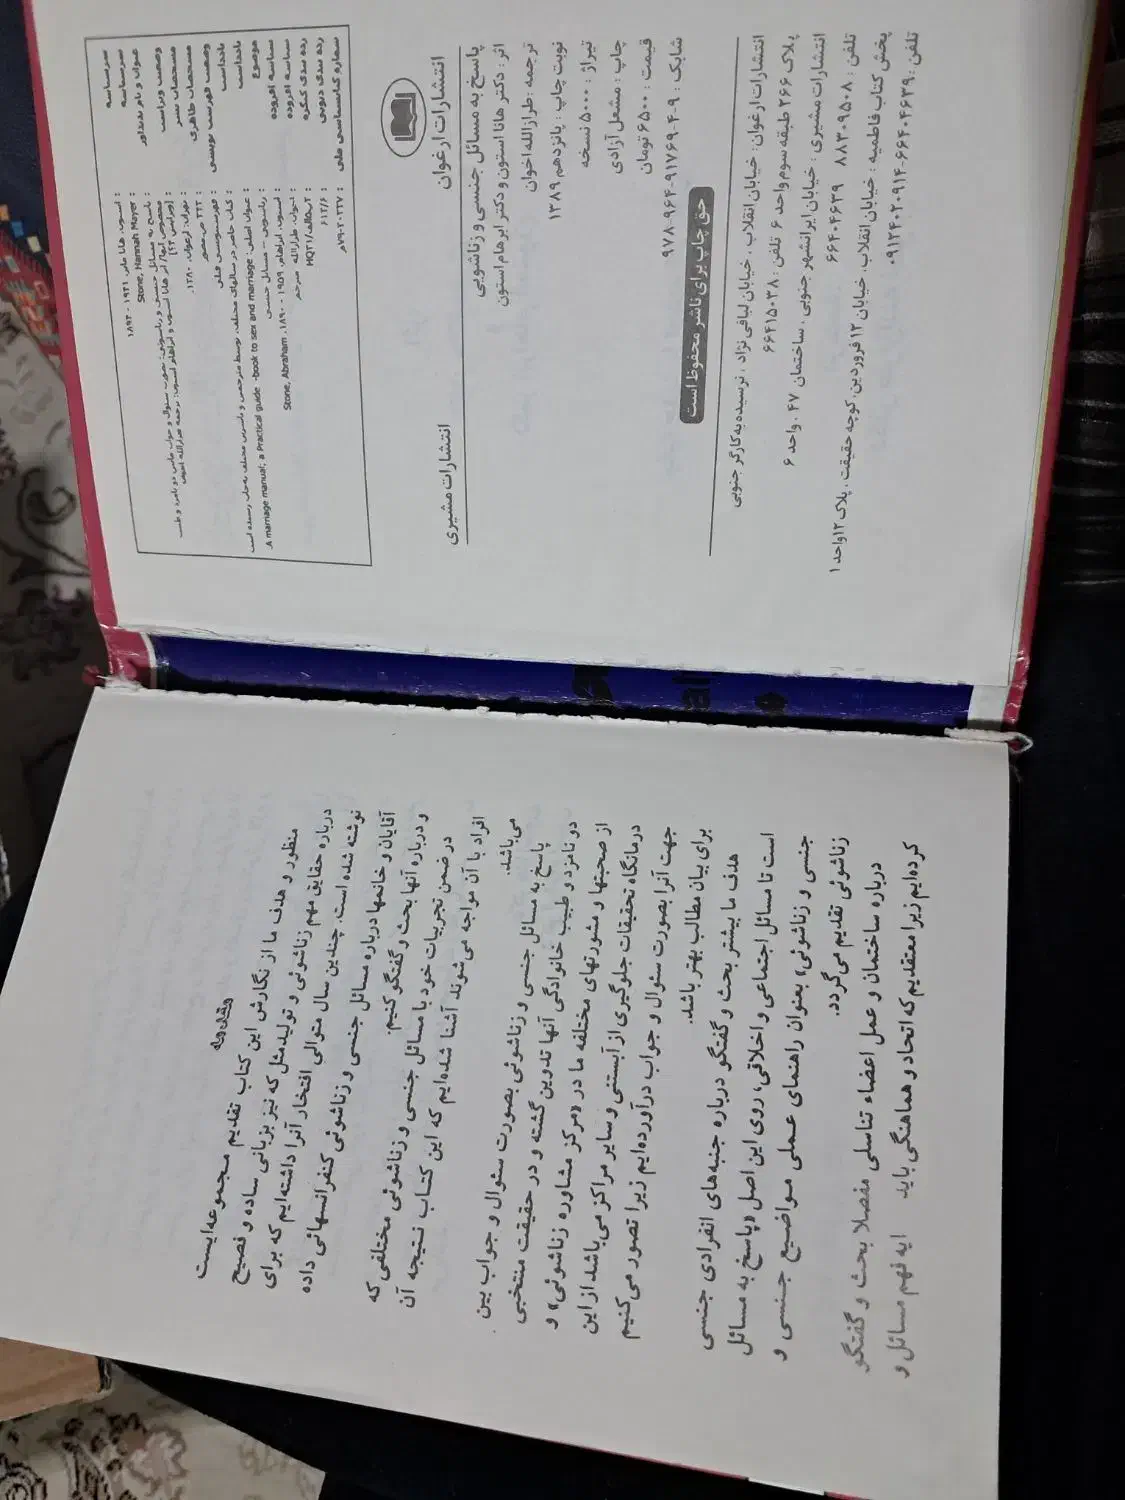 سرشناسه : استون، هانا مایر، ۱۹۴۱ - ۱۸۹۳
سرشناسه : Stone, Hannah Mayer
عنوان و نام پدیدآور : پاسخ به مسائل جنسی و زناشویی: بصورت سئوال و جواب مابین دو نامزد و طبیب
مخصوص آنها / اثر هانا استون و ابراهام استون؛ ترجمه طرازالله اخوان
وضعیت ویراست
مشخصات نشر : تهران: ارغوان، ۱۳۸۰.
مشخصات ظاهری : ۲۲۲ ص. مصور
وضعیت فهرست نویسی : فهرستنویسی قبلی
یادداشت : کتاب حاضر در سالهای مختلف، توسط مترجمین و ناشرین مختلف به‌چاپ رسیده است
یادداشت : عنوان اصلی: A marriage manual; a Practical guide -book to sex and marriage.
موضوع : زناشویی -- مسائل جنسی
شناسه افزوده : استون، ابراهام، ۱۹۵۹ - ۱۸۹۰. Stone, Abraham
شناسه افزوده : اخوان، طرازالله، مترجم
رده بندی کنگره : HQ۳۱/
رده بندی دیویی : ۶۱۲/۶
شماره کتابشناسی ملی : ۷۹-۲۰۲۲۷م
انتشارات ارغوان
انتشارات مشیری
پاسخ به مسائل جنسی و زناشویی
اثر: دکتر هانا استون و دکتر ابرهام استون
ترجمه : طرازالله اخوان
نوبت چاپ : پانزدهم ۱۳۸۹
تیراژ : ۵۰۰۰ نسخه
چاپ : مشعل آزادی
قیمت : ۶۵۰۰ تومان
شابک : ۹-۴-۹۱۷۶۹-۹۶۴-۹۷۸
حق چاپ برای ناشر محفوظ است
انتشارات ارغوان: خیابان انقلاب ، خیابان لبافی نژاد ، نرسیده به کارگر جنوبی
پلاک ۲۶۶ طبقه سوم واحد ۶ تلفن : ۶۶۴۱۵۰۳۸
انتشارات مشیری : خیابان ایرانشهر جنوبی ، ساختمان ۴۷ ، واحد ۶
تلفن : ۸۸۳۰۹۵۰۸ ۶۶۴۰۴۶۳۹
پخش کتاب فاطمیه : خیابان انقلاب، خیابان ۱۲ فروردین، کوچه حقیقت ، پلاک ۱۲ واحد ۱
تلفن : ۶۶۴۰۴۶۳۹-۰۹۱۲۴۰۲۰۹۱۴
مقدمه
منظور و هدف ما از نگارش این کتاب تقدیم مجموعه‌ایست
درباره حقایق مهم زناشوئی و تولیدمثل که نیز بزبانی ساده و فصیح
نوشته شده است. چندین سال متوالی افتخار آنرا داشته‌ایم که برای
آقایان و خانمها درباره مسائل جنسی و زناشوئی کنفرانسهائی داده
و درباره آنها بحث و گفتگو کنیم.
در ضمن تجربیات خود با مسائل جنسی و زناشوئی مختلفی که
افراد با آن مواجه می‌شوند آشنا شده‌ایم که این کتاب نتیجه آن
می‌باشد.
پاسخ به مسائل جنسی و زناشوئی بصورت سئوال و جواب بین
دو نامزد و طبیب خانوادگی آنها تدوین گشته و در حقیقت منتخبی
از صحبتها و مشورتهای مختلفه ما در «مرکز مشاوره زناشوئی» و
درمانگاه تحقیقات جلوگیری از آبستنی و سایر مراکز می‌باشد از این
جهت آنرا بصورت سئوال و جواب درآورده‌ایم زیرا تصور می‌کنیم
برای بیان مطالب بهتر باشد.
هدف ما بیشتر بحث و گفتگو درباره جنبه‌های انفرادی جنسی
است تا مسائل اجتماعی و اخلاقی، روی این اصل «پاسخ به مسائل
جنسی و زناشوئی» بعنوان راهنمای عملی مواضیع جنسی و
زناشوئی تقدیم می‌گردد.
درباره ساختمان و عمل اعضاء تناسلی مفصلا بحث و گفتگو
کرده‌ایم زیرا معتقدیم که اتحاد و هماهنگی باید فهم مسائل و